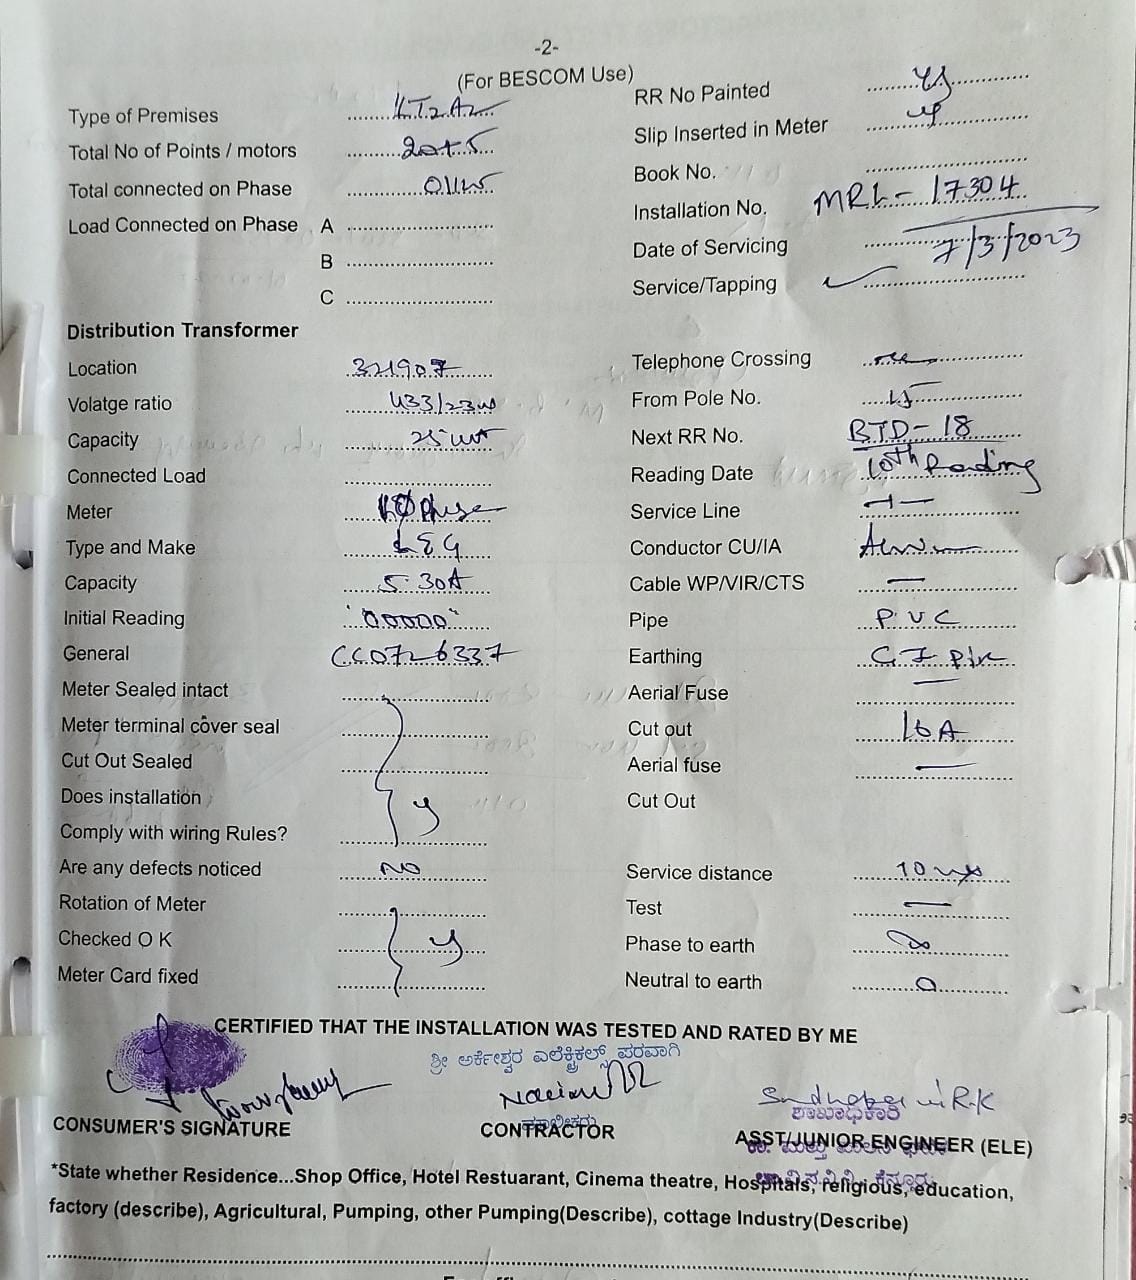 -2-
(For BESCOM Use)
Type of Premises LT2A2
RR No Painted yes
Total No of Points / motors 20+5
Slip Inserted in Meter
Total connected on Phase
Book No.
Load Connected on Phase A
Installation No. MRL-17304
B
Date of Servicing 7/3/2023
C
Service/Tapping
Distribution Transformer
Location 321907
Telephone Crossing
Volatge ratio 433/230
From Pole No.
Capacity 25
Next RR No. BTD-18
Connected Load
Reading Date 10th Reading
Meter 1Ø Phase
Service Line
Type and Make L&G
Conductor CU/IA
Capacity 5-30A
Cable WP/VIR/CTS —
Initial Reading "00000"
Pipe PVC
General CC0726337
Earthing G I pipe
Meter Sealed intact
Aerial Fuse —
Meter terminal cover seal
Cut out 16A
Cut Out Sealed
Aerial fuse —
Does installation
Cut Out
Comply with wiring Rules?
Are any defects noticed NO
Service distance 10 mts
Rotation of Meter
Test —
Checked O K
Phase to earth
Meter Card fixed
Neutral to earth 0
CERTIFIED THAT THE INSTALLATION WAS TESTED AND RATED BY ME
ಶ್ರೀ ಅರ್ಕೇಶ್ವರ ಎಲೆಕ್ಟ್ರಿಕಲ್ಸ್ ಪರವಾಗಿ
CONSUMER'S SIGNATURE
CONTRACTOR
ಶಾಖಾಧಿಕಾರಿ
ASST/JUNIOR ENGINEER (ELE)
*State whether Residence...Shop Office, Hotel Restuarant, Cinema theatre, Hospitals, religious, education,
factory (describe), Agricultural, Pumping, other Pumping(Describe), cottage Industry(Describe)